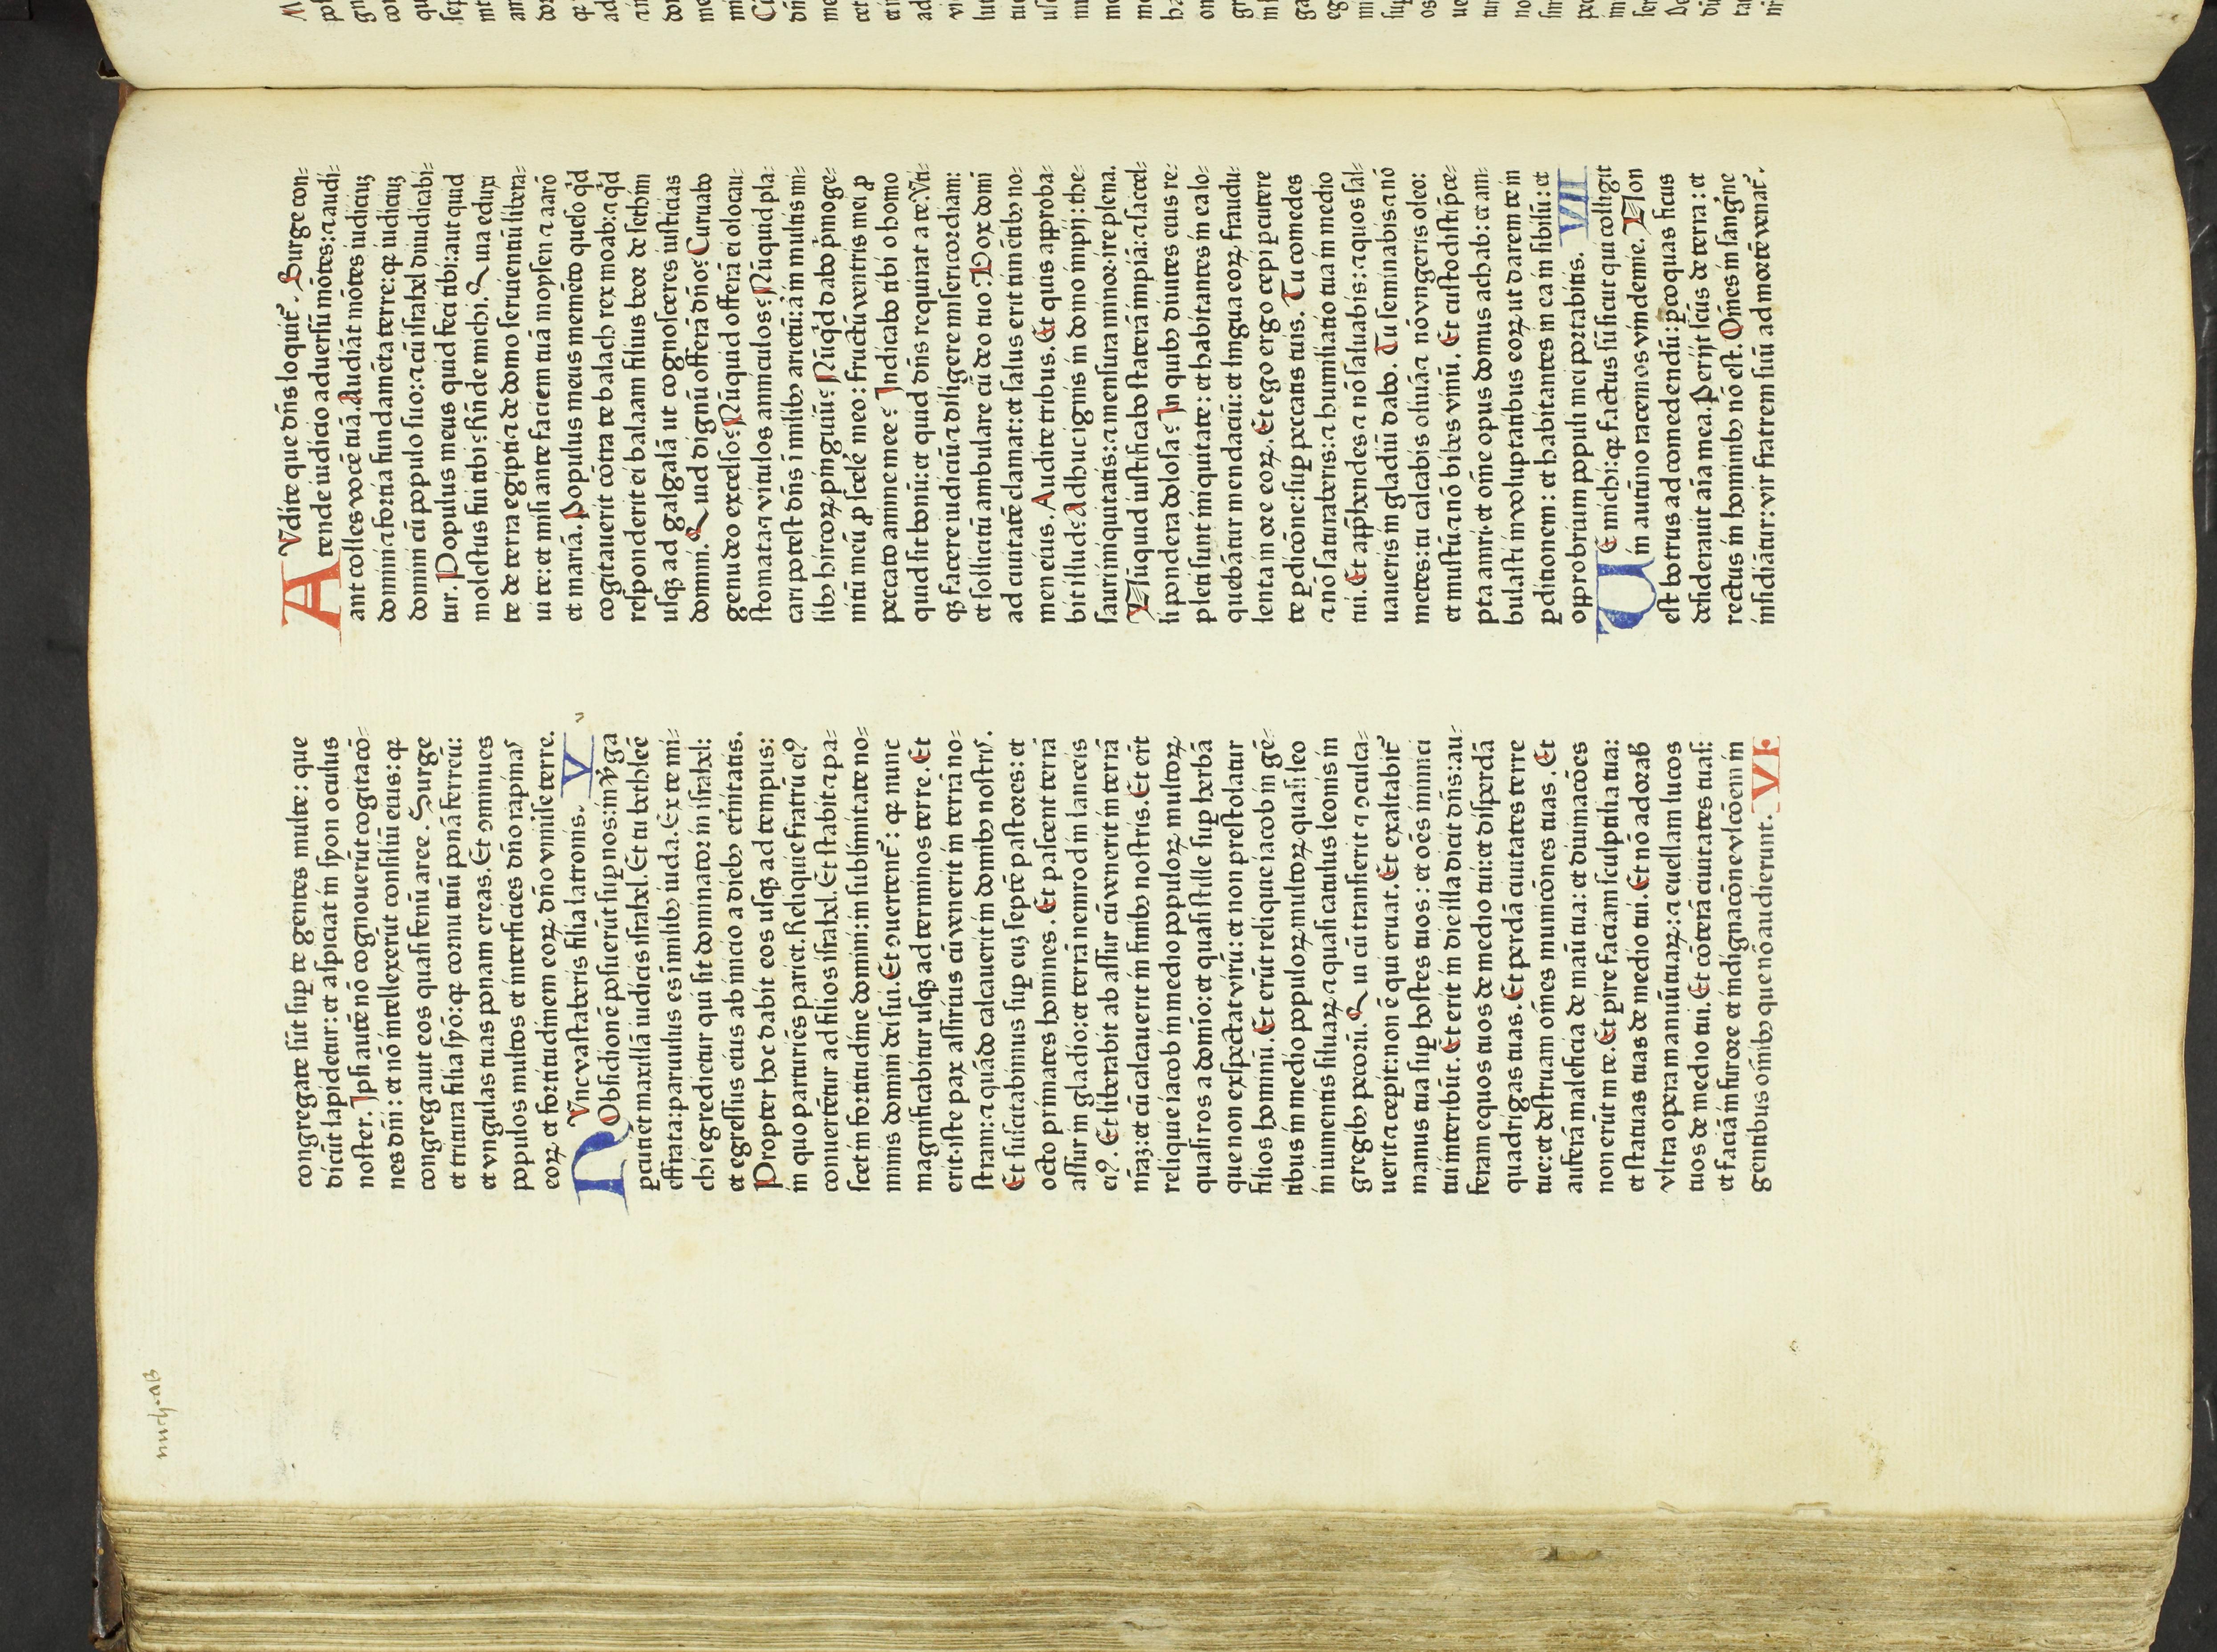 congregate sūt suꝑ te gentes multe: que
dicūt lapidetur: et aspiciat in syon oculus
noster. Ipsi autē nō cognouerūt cogitacō⸗
nes dn̄i: et nō intellexerūt consiliū eius: qꝛ
congregauit eos quasi fenū aree. Surge
et tritura filia syō: qꝛ cornu tuū ponā ferreū:
et vngulas tuas ponam ereas. Et ꝯminues
populos multos et interficies dn̄o rapinas
eoꝝ et fortitudinem eoꝝ dn̄o vniuerse terre.
Nunc vastaberis filia latronis. V
Obsidionē posuerūt suꝑ nos: in v̓ga
ꝑcutiet maxillā iudicis israhel. Et tu bethleē
effrata: paruulus es ī milibꝫ iuda. Ex te mi⸗
chi egredietur qui sit dominator in israhel:
et egressus eius ab inicio a diebꝫ et̓nitatis.
Propter hoc dabit eos usqꝫ ad tempus:
in quo parturiēs pariet. Reliquie fratrū eiꝰ
conuertētur ad filios israhel. Et stabit ⁊ pa⸗
scet in fortitudine domini: in sublimitate no⸗
minis domini dei sui. Et ꝯuertent̄: qꝛ nunc
magnificabitur usqꝫ ad terminos terre. Et
erit iste pax assirius cū venerit in terrā no⸗
stram: ⁊ quādo calcauerit in domibꝫ nostris.
Et suscitabimus suꝑ euꝫ septē pastores: et
octo primates homines. Et pascent terrā
assur in gladio: et terrā nemrod in lanceis
eiꝰ. Et liberabit ab assur cū venerit in terrā
nr̄aꝫ: et cū calcauerit in finibꝫ nostris. Et er̄t
reliquie iacob in medio populoꝝ multoꝝ
quasi ros a domīo: et quasi stille suꝑ herbā
que non exspectat virū: et non prestolatur
filios hominū. Et erūt reliquie iacob in gē⸗
tibus in medio populoꝝ multoꝝ quasi leo
in iumentis siluaꝝ ⁊ quasi catulus leonis in
gregibꝫ pecorū. Qui cū transierit ⁊ ꝯculca⸗
uerit ⁊ ceperit: non ē qui eruat. Et exaltabit̄
manus tua suꝑ hostes tuos: et oēs inimici
tui interibūt. Et erit in die illa dicit dn̄s: au⸗
feram equos tuos de medio tui: et disperdā
quadrigas tuas. Et perdā ciuitates terre
tue: et destruam om̄es municōnes tuas. Et
auferā maleficia de manū tua: et diuinacōes
non erūt in te. Et ꝑire faciam sculptilia tua:
et statuas tuas de medio tui. Et nō adorab̓
vltra opera manuū tuaꝝ: ⁊ euellam lucos
tuos de medio tui. Et cōterā ciuitates tuas:
et faciā in furore et indignacōne vlcōem in
gentibus om̄ibꝫ que nō audierunt. VI.
AVdite que dn̄s loquit̄. Surge con⸗
tende iudicio aduersū mōtes: ⁊ audi⸗
ant colles vocē tuā. Audiāt mōtes iudiciuꝫ
domini ⁊ fortia fundamēta terre: qꝛ iudiciuꝫ
domini cū populo suo: ⁊ cū israhel diiudicabi⸗
tur. Populus meus quid feci tibi: aut quid
molestus fui tibi: rn̄de michi. Quia eduxi
te de terra egipti ⁊ de domo seruientiū libera⸗
ui te: et misi ante faciem tuā moysen ⁊ aarō
et mariā. Populus meus memēto queso qͥd
cogitauerit cōtra te balach rex moab: ⁊ qͥd
responderit ei balaam filius beor de sethim
usqꝫ ad galgalā ut cognosceres iusticias
domini. Quid dignū offerā dn̄o? Curuabo
genu deo excelso? Nūquid offerā ei olocau⸗
stomata ⁊ vitulos anniculos? Nūquid pla⸗
cari potest dn̄s ī milibꝫ arietū: a̓ in multis mi⸗
libꝫ hircoꝝ pinguiū? Nūqͥd dabo pͥmoge⸗
nitū meū ꝓ scelē meo: fructū ventris mei ꝓ
peccato anime mee? Indicabo tibi o homo
quid sit bonū: et quid dn̄s requirat a te. Vti⸗
qꝫ facere iudiciū ⁊ diligere misericordiam:
et sollicitū ambulare cū deo tuo. Vox domī
ad ciuitatē clamat: et salus erit timētibꝫ no⸗
men eius. Audite tribus. Et quis approba⸗
bit illud? Adhuc ignis in domo impij: the⸗
sauri iniquitatis: ⁊ mensura minor ire plena.
Nūquid iustificabo staterā impiā: ⁊ saccel⸗
li pondera dolosa? In quibꝫ diuites eius re⸗
pleti sunt iniquitate: et habitantes in ea lo⸗
quebātur mendaciū: et lingua eoꝝ fraudu⸗
lenta in ore eoꝝ. Et ego ergo cepi ꝑcutere
te ꝑdicōne: suꝑ peccatis tuis. Tu comedes
⁊ nō saturaberis: ⁊ humiliatio tua in medio
tui. Et apprehendes ⁊ nō saluabis: ⁊ quos sal⸗
uaueris in gladiū dabo. Tu seminabis ⁊ nō
metes: tu calcabis oliuā ⁊ nō vngeris oleo:
et mustū ⁊ nō bibes vinū. Et custodisti p̄ce⸗
pta amri et om̄e opus domus achab: et am⸗
bulasti in voluptatibus eoꝝ ut darem te in
ꝑditionem: et habitantes in ea in sibilū: et
opprobrium populi mei portabitis. VII
Ue michi: qꝛ factus sū sicut qui colligit
in autūno racemos vindemie. Non
est botrus ad comedendū: p̄coquas ficus
desiderauit aīa mea. Perijt sc̄us de terra: et
rectus in hominibꝫ nō est. Om̄es in sangͥne
insidiātur: vir fratrem suū ad mortē venat̄.